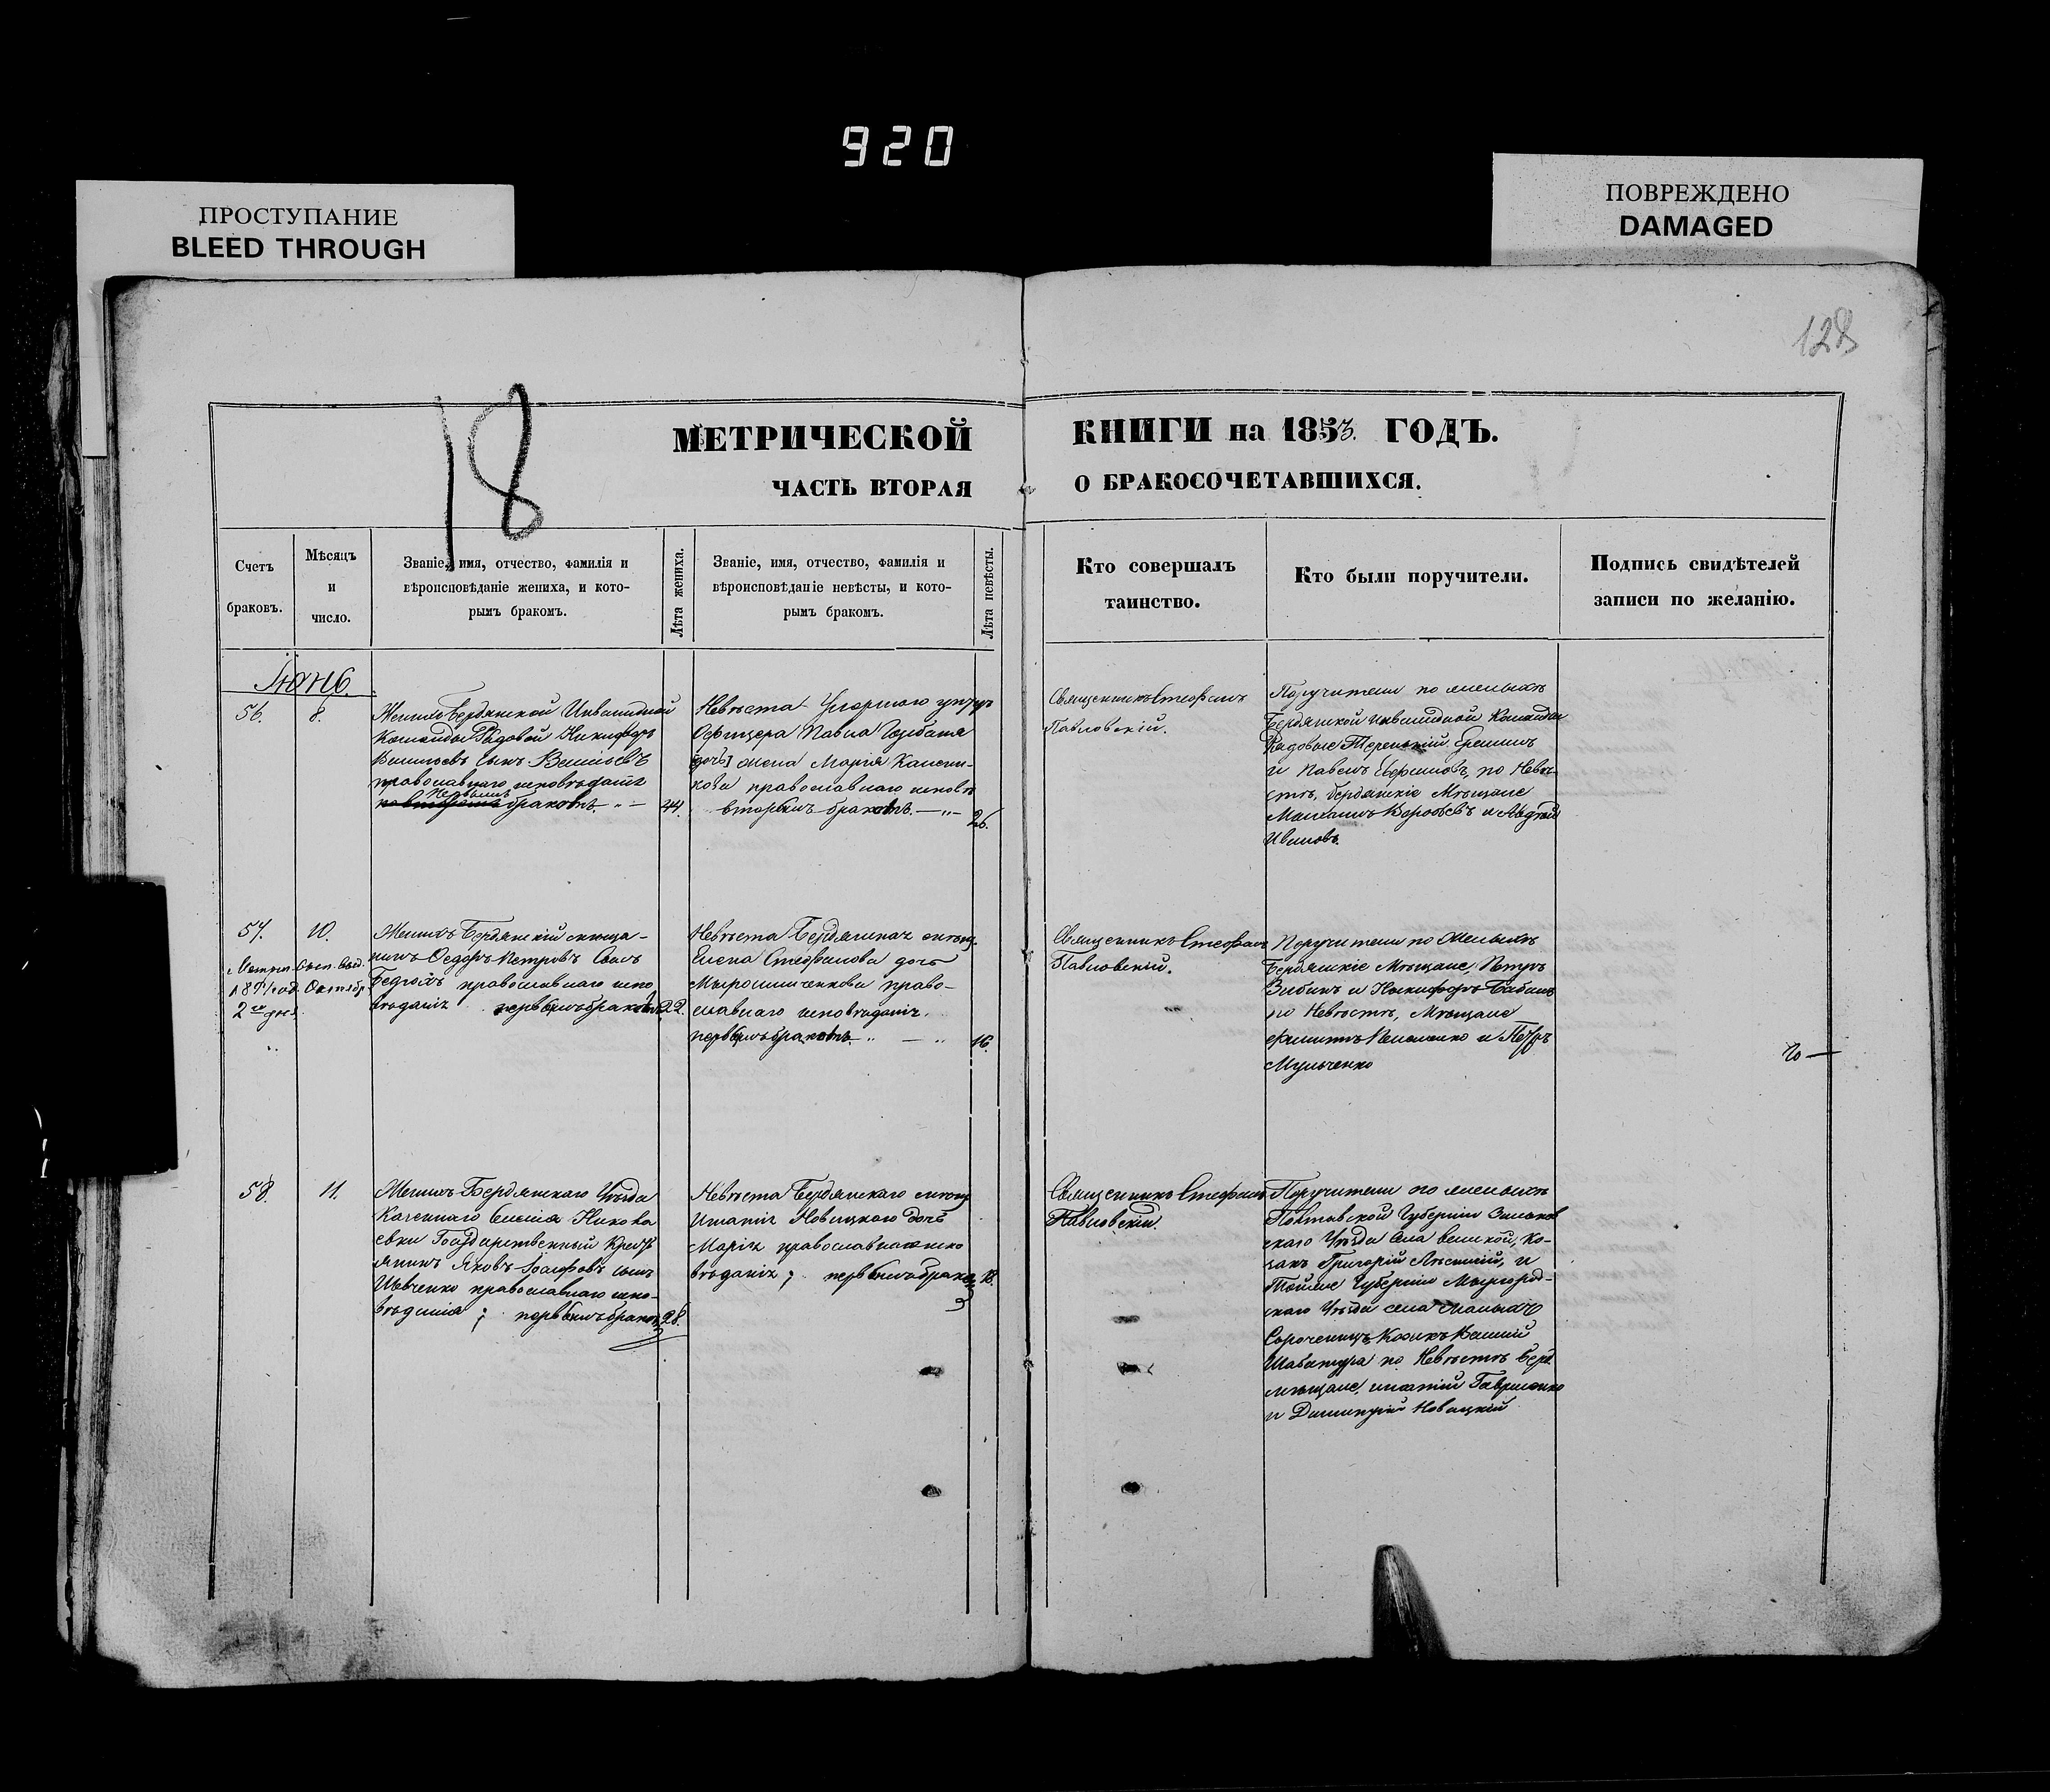 920
ПРОСТУПАНИЕ
BLEED THROUGH
ПОВРЕЖДЕНО
DAMAGED
128
18
МЕТРИЧЕСКОЙ
ЧАСТЬ ВТОРАЯ
КНИГИ на 1853. ГОДЪ.
О БРАКОСОЧЕТАВШИХСЯ.
Счетъ
браковъ.
Мѣсяцъ
и
число.
Званіе, имя, отчество, фамилія и
вѣроисповѣданіе жениха, и кото-
рымъ бракомъ.
Лѣта жениха.
Званіе, имя, отчество, фамилія и
вѣроисповѣданіе невѣсты, и кото-
рымъ бракомъ.
Лѣта невѣсты.
Кто совершалъ
таинство.
Кто были поручители.
Подпись свидѣтелей
записи по желанію.
Іюнь.
56.
8.
Женихъ Бердянской Инвалидной
Команды Рядовой Никифоръ
Васильевъ сынъ Васильевъ
православнаго исповѣданія
первымъ
бракомъ
44.
Невѣста
Офицера Павла
дочь Мария
православнаго исповѣ
вторымъ бракомъ
26.
Священникъ Стефанъ
Павловскій.
Поручители по женихѣ
Бердянской инвалидной Команды
Рядовые Терентій
и Павелъ по Невѣ-
стѣ, бердянскіе Мѣщане
Воробьевъ и Авдѣй
Ивановъ.
57.
10.
187 год. Октября
2
Женихъ Бердянскій мѣща-
нинъ Федоръ Петровъ сынъ
православнаго испо
вѣданія первымъ бракомъ
22.
Невѣста Бердянская мѣщ.
Елена Стефанова дочь
Мирошниченкова право-
славнаго исповѣданія,
первымъ бракомъ
16.
Священникъ Стефанъ
Павловскій.
Поручители по Женихѣ
Бердянскіе Мѣщане, Петръ
и Никифоръ Бабинъ
по Невѣстѣ, Мѣщане
и Петръ
Мульченко
58.
11.
Женихъ Бердянскаго Уѣзда
Казеннаго селенія Никола
евки Государственный Кресть
янинъ Яковъ сынъ
Шевченко православнаго испо-
вѣданія; первымъ бракомъ
28.
Невѣста Бердянскаго мѣщ
Игнатія Новицкаго дочь
Марія православнаго испо
вѣданія; первымъ бракомъ
18.
Священникъ Стефанъ
Павловскій.
Поручители по женихѣ
Полтавской Губерніи Зиньков
скаго Уѣзда села Великой, Ко-
закъ Григорій и
Тойже Губерніи Миргород-
скаго Уѣзда села
Сорочинецъ
по Невѣстѣ Берд.
мѣщане, Игнатій Гавриленко
и Димитрій Новицкій